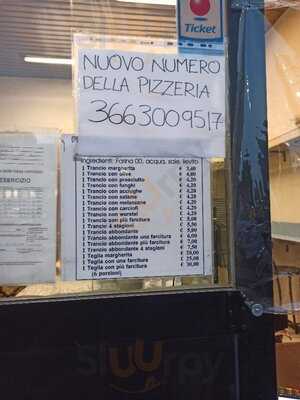 Ticket
NUOVO NUMERO
DELLA PIZZERIA
3663009517
Ingredienti: Farina 00, acqua, sale, lievito
1 Trancio margherita € 3,40
1 Trancio con olive € 4,00
1 Trancio con prosciutto € 4,20
1 Trancio con funghi € 4,20
1 Trancio con acciughe € 4,20
1 Trancio con salame € 4,20
1 Trancio con melanzane € 4,20
1 Trancio con carciofi € 4,20
1 Trancio con wurstel € 4,20
1 Trancio con più farcitura € 5,00
1 Trancio 4 stagioni € 5,50
1 Trancio abbondante € 5,00
1 Trancio abbondante una farcitura € 6,00
1 Trancio abbondante più farcitura € 7,00
1 Trancio abbondante 4 stagioni € 7,50
1 Teglia margherita € 20,00
1 Teglia con una farcitura € 25,00
1 Teglia con più farcitura € 30,00
(6 porzioni)
ESERCIZIO
Sluurpy